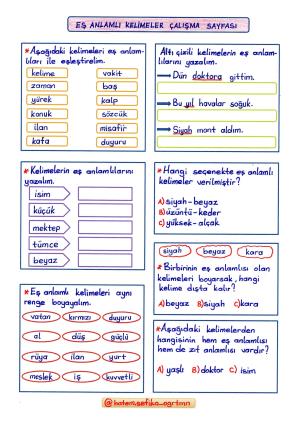 EŞ ANLAMLI KELİMELER ÇALIŞMA SAYFASI
*Aşağıdaki kelimeleri eş anlam-
lıları ile eşleştirelim.
kelime vakit
zaman baş
yürek kalp
konuk sözcük
ilan misafir
kafa duyuru
Altı çizili kelimelerin eş anlam-
lılarını yazalım.
Dün doktora gittim.
Bu yıl havalar soğuk.
Siyah mont aldım.
*Kelimelerin eş anlamlılarını
yazalım.
isim
küçük
mektep
tümce
beyaz
*Hangi seçenekte eş anlamlı
kelimeler verilmiştir?
A) siyah-beyaz
B) üzüntü-keder
C) yüksek-alçak
siyah beyaz kara
*Birbirinin eş anlamlısı olan
kelimeleri boyarsak, hangi
kelime dışta kalır?
A) beyaz B) siyah C) kara
*Eş anlamlı kelimeleri aynı
renge boyayalım.
vatan kırmızı duyuru
al düş güçlü
rüya ilan yurt
meslek iş kuvvetli
*Aşağıdaki kelimelerden
hangisinin hem eş anlamlısı
hem de zıt anlamlısı vardır?
A) yaşlı B) doktor C) isim
@hatem.sefika_ogrtmn